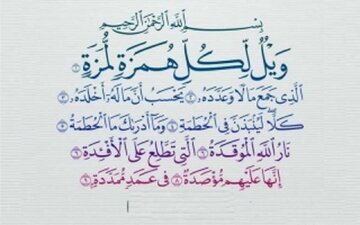 بِسْمِ اللَّهِ الرَّحْمَٰنِ الرَّحِيمِ
وَيْلٌ لِّكُلِّ هُمَزَةٍ لُّمَزَةٍ ۝١
الَّذِي جَمَعَ مَالًا وَعَدَّدَهُ ۝٢ يَحْسَبُ أَنَّ مَالَهُ أَخْلَدَهُ ۝٣
كَلَّا ۖ لَيُنبَذَنَّ فِي الْحُطَمَةِ ۝٤ وَمَا أَدْرَىٰكَ مَا الْحُطَمَةُ ۝٥
نَارُ اللَّهِ الْمُوقَدَةُ ۝٦ الَّتِي تَطَّلِعُ عَلَى الْأَفْئِدَةِ ۝٧
إِنَّهَا عَلَيْهِم مُّؤْصَدَةٌ ۝٨ فِي عَمَدٍ مُّمَدَّدَةٍ ۝٩